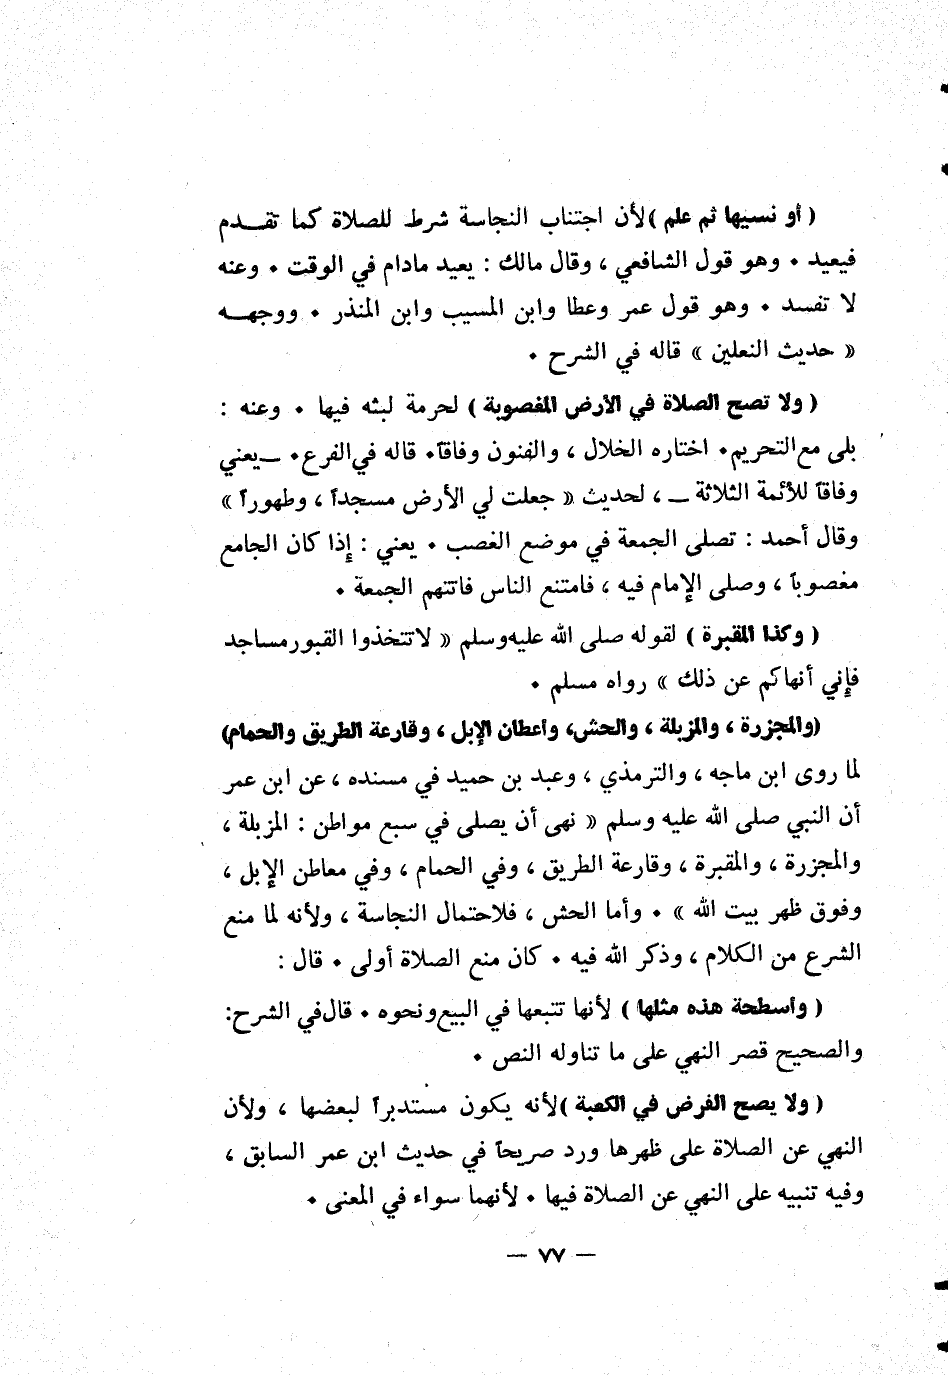 ( أو نسيها ثم علم ) لأن اجتناب النجاسة شرط للصلاة كما تقـدم
فيعيد . وهو قول الشافعي ، وقال مالك : يعيد مادام في الوقت . وعنه
لا تفسد . وهو قول عمر وعطا وابن المسيب وابن المنذر . ووجهـه
« حديث النعلين » قاله في الشرح .
( ولا تصح الصلاة في الأرض المغصوبة ) لحرمة لبثه فيها . وعنه :
بلى مع التحريم . اختاره الخلال ، والفنون وفاقاً . قاله في الفرع . ــ يعني
وفاقاً للأئمة الثلاثة ــ ، لحديث « جعلت لي الأرض مسجداً ، وطهوراً »
وقال أحمد : تصلى الجمعة في موضع الغصب . يعني : إذا كان الجامع
مغصوباً ، وصلى الإمام فيه ، فامتنع الناس فاتتهم الجمعة .
( وكذا المقبرة ) لقوله صلى الله عليه وسلم « لا تتخذوا القبور مساجد
فإني أنهاكم عن ذلك » رواه مسلم .
(والمجزرة ، والمزبلة ، والحش، وأعطان الإبل ، وقارعة الطريق والحمام)
لما روى ابن ماجه ، والترمذي ، وعبد بن حميد في مسنده ، عن ابن عمر
أن النبي صلى الله عليه وسلم « نهى أن يصلى في سبع مواطن : المزبلة ،
والمجزرة ، والمقبرة ، وقارعة الطريق ، وفي الحمام ، وفي معاطن الإبل ،
وفوق ظهر بيت الله » . وأما الحش ، فلاحتمال النجاسة ، ولأنه لما منع
الشرع من الكلام ، وذكر الله فيه . كان منع الصلاة أولى . قال :
( وأسطحة هذه مثلها ) لأنها تتبعها في البيع ونحوه . قال في الشرح:
والصحيح قصر النهي على ما تناوله النص .
( ولا يصح الفرض في الكعبة ) لأنه يكون مستدبراً لبعضها ، ولأن
النهي عن الصلاة على ظهرها ورد صريحاً في حديث ابن عمر السابق ،
وفيه تنبيه على النهي عن الصلاة فيها . لأنهما سواء في المعنى .
— ٧٧ —